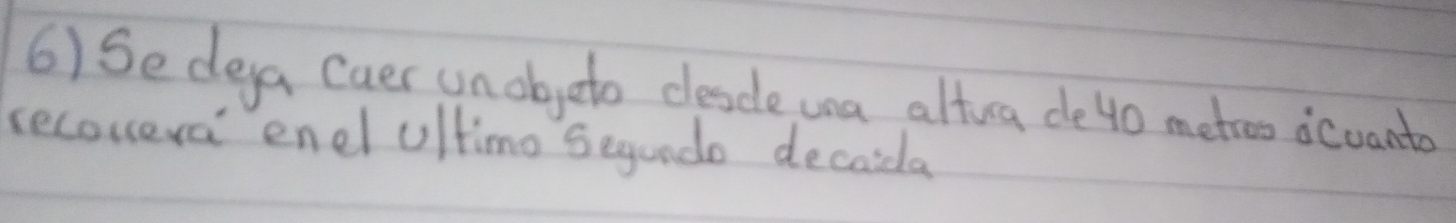 6) Se deja caer un objeto desde una altura de 40 metros ¿cuanto
recorrerá en el ultimo segundo de caida